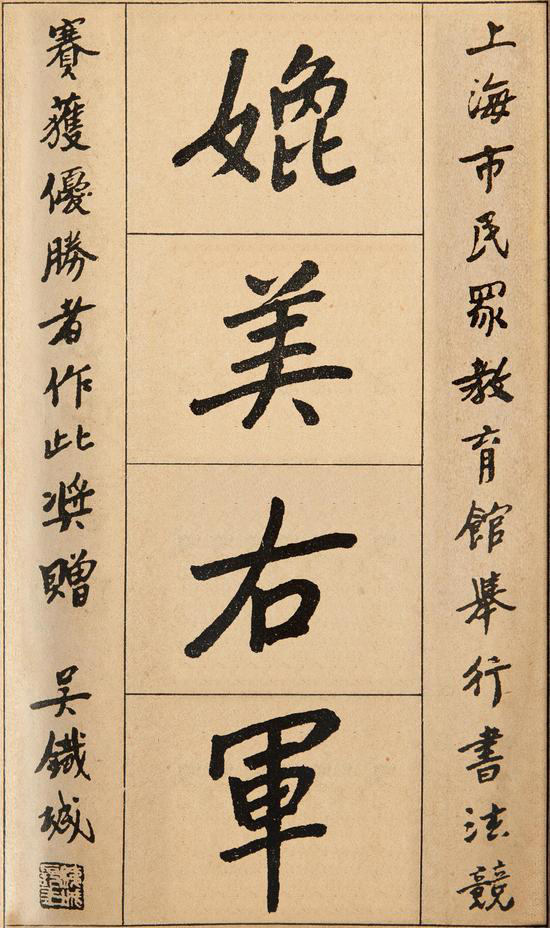 上海市民眾教育館舉行書法競
媲美右軍
賽獲優勝者作此奬贈
吳鐵城